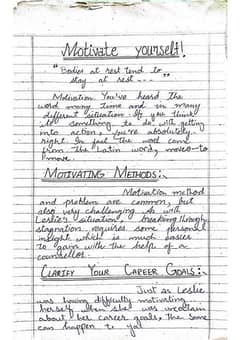 Motivate yourself!
"Bodies at rest tend to
stay at rest - - - "
Motivation. You've heard the
word many time and in many
different situation. If you think
do something to do with getting
into action, you're absolutely
right. In fact the word come
from the Latin word, moveo-to
move.
MOTIVATING METHODS:.
Motivation method
and problem are common, but
also very challenging. As with
Leslie's situation, breaking through
stagnation requires some personal
insight which is much easier
to gain with the help of a
counsellor.
CLARIFY YOUR CAREER GOALS:.
Just as Leslie
was having difficulty motivating
herself when she was uncertain
about her career goals, the same
can happen to you